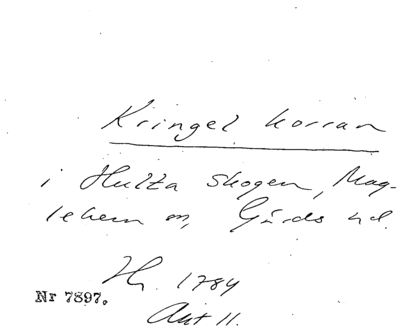 Kringel korran
i Hulta skogen, Mag-
lehem sn, Gärds hd.
Hr. 1784
Nr 7897.
Akt 11.